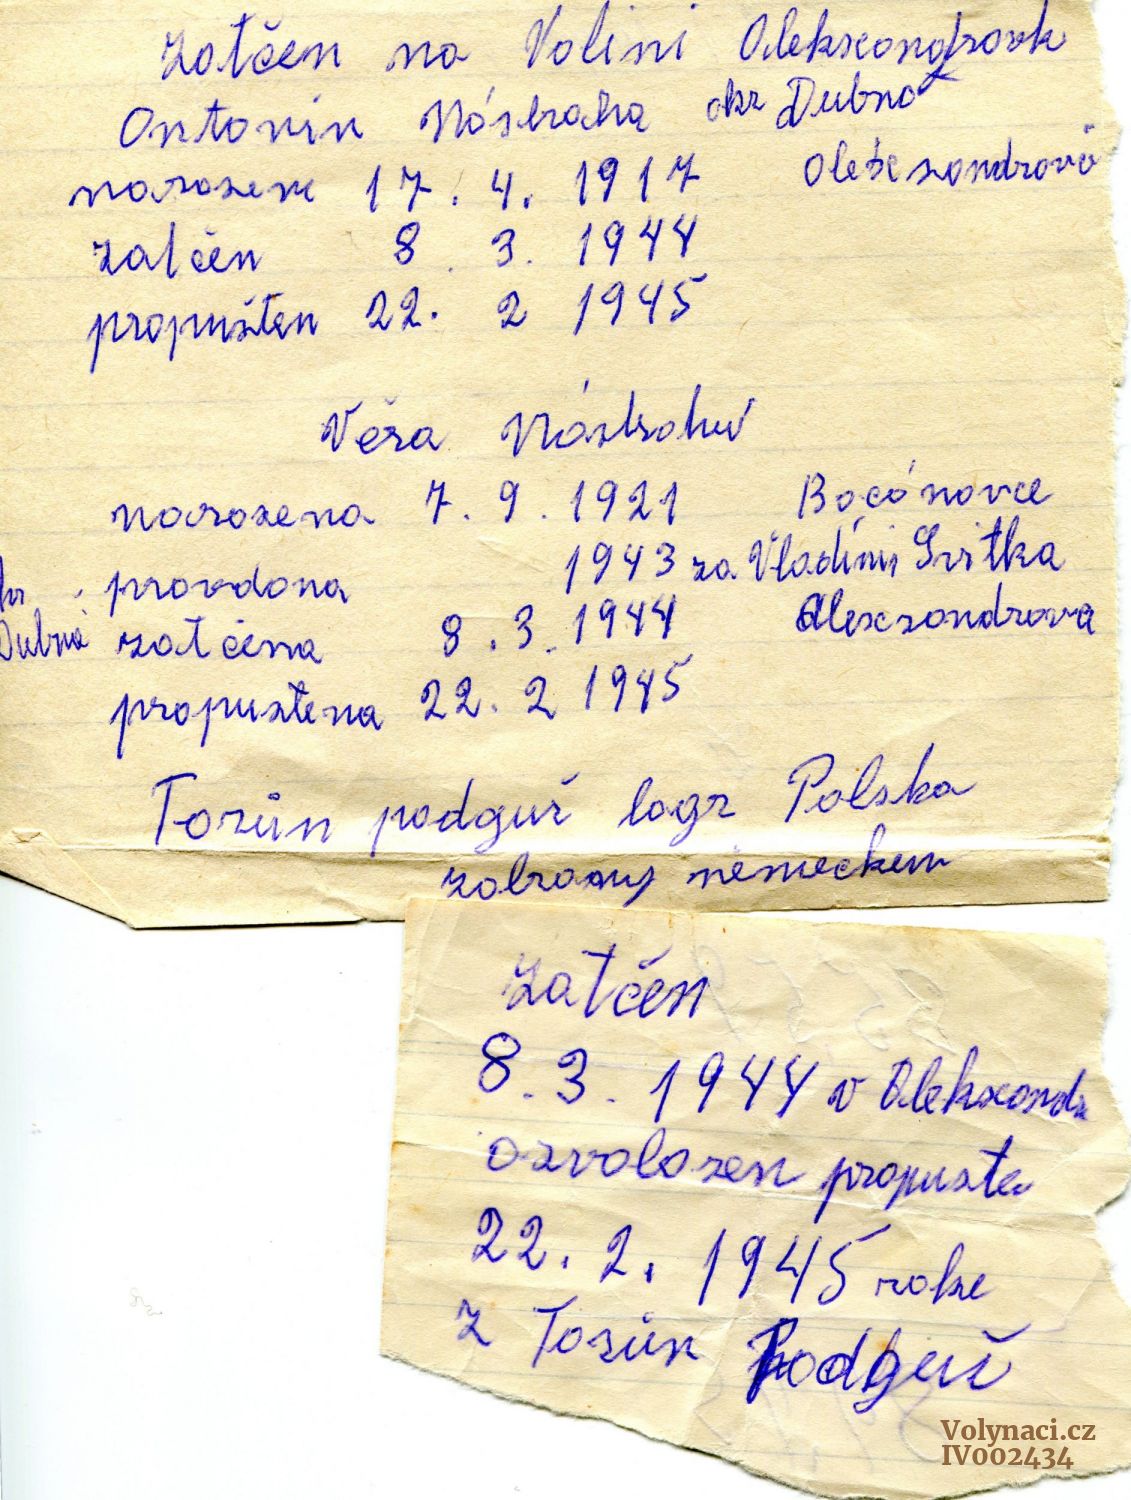 Zatčen na Volini Olekxandrovk
Antonín Nástraha okr Dubno
narozen 17. 4. 1917 Olekxandrově
zatčen 8. 3. 1944
propuštěn 22. 2 1945
Věra Nástrahů
narozena 7. 9. 1921 Bocánovce
provdana 1943 za Vladimír Svitka
kr Dubně zatčena 8. 3. 1944 Alexzandrova
propuštena 22. 2 1945
Torůn podguř lagr Polska
zabrany německem
Zatčen
8. 3. 1944 v Olekxandr
ozvobozen propuště
22. 2. 1945 roke
z Torůn Podguř
Volynaci.cz
IV002434